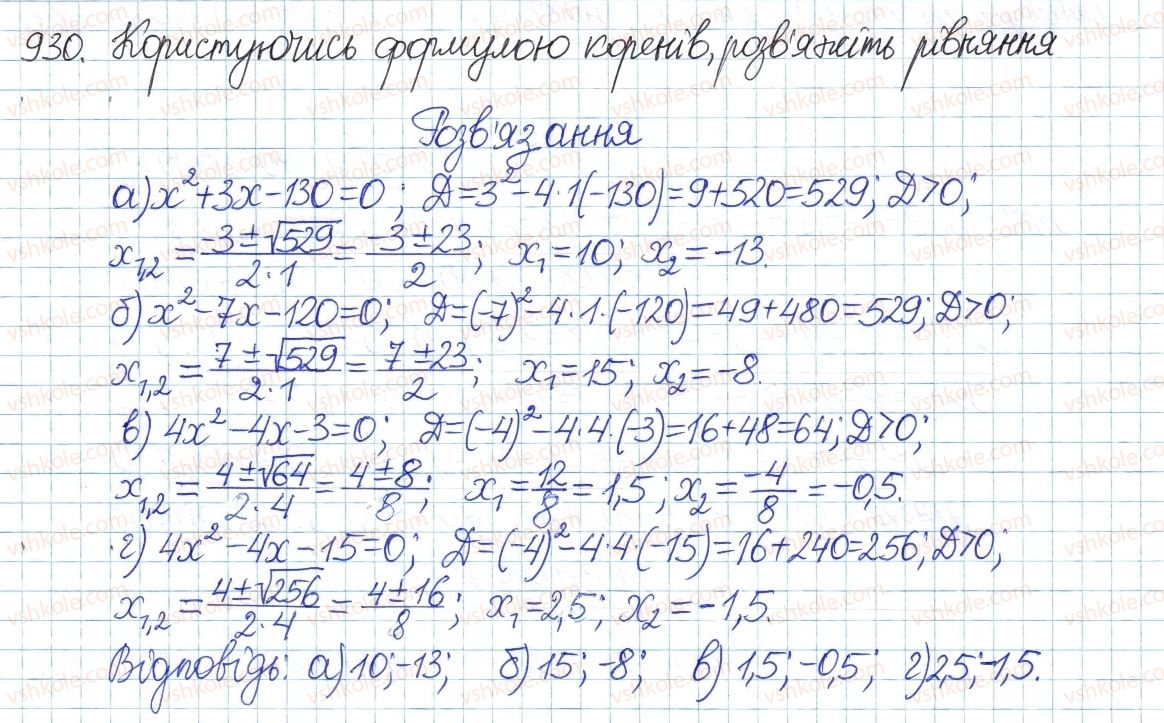 930. Користуючись формулою коренів, розв'яжіть рівняння
Розв'язання
а) x²+3x-130=0; Д=3²-4·1(-130)=9+520=529; Д>0;
x₁,₂ = (-3±√529)/(2·1) = (-3±23)/2; x₁=10; x₂=-13.
б) x²-7x-120=0; Д=(-7)²-4·1·(-120)=49+480=529; Д>0;
x₁,₂ = (7±√529)/(2·1) = (7±23)/2; x₁=15; x₂=-8.
в) 4x²-4x-3=0; Д=(-4)²-4·4·(-3)=16+48=64; Д>0;
x₁,₂ = (4±√64)/(2·4) = (4±8)/8; x₁=12/8=1,5; x₂=-4/8=-0,5.
г) 4x²-4x-15=0; Д=(-4)²-4·4·(-15)=16+240=256; Д>0;
x₁,₂ = (4±√256)/(2·4) = (4±16)/8; x₁=2,5; x₂=-1,5.
Відповідь: а) 10; -13; б) 15; -8; в) 1,5; -0,5; г) 2,5; -1,5.
vshkole.com